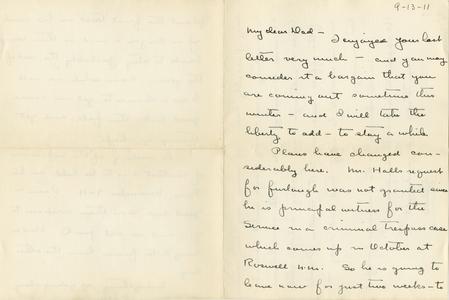 9-13-11
My dear Dad -
I enjoyed your last
letter very much - and you may
consider it a bargain that you
are coming out sometime this
winter - and I will take the
liberty to add - to stay a while.
Plans have changed con-
siderably here. Mr. Halls request
for furlough was not granted since
he is principal witness for the
Service in a criminal trespass case
which comes up in October at
Roswell N.M. So he is going to
leave now for just two weeks - to